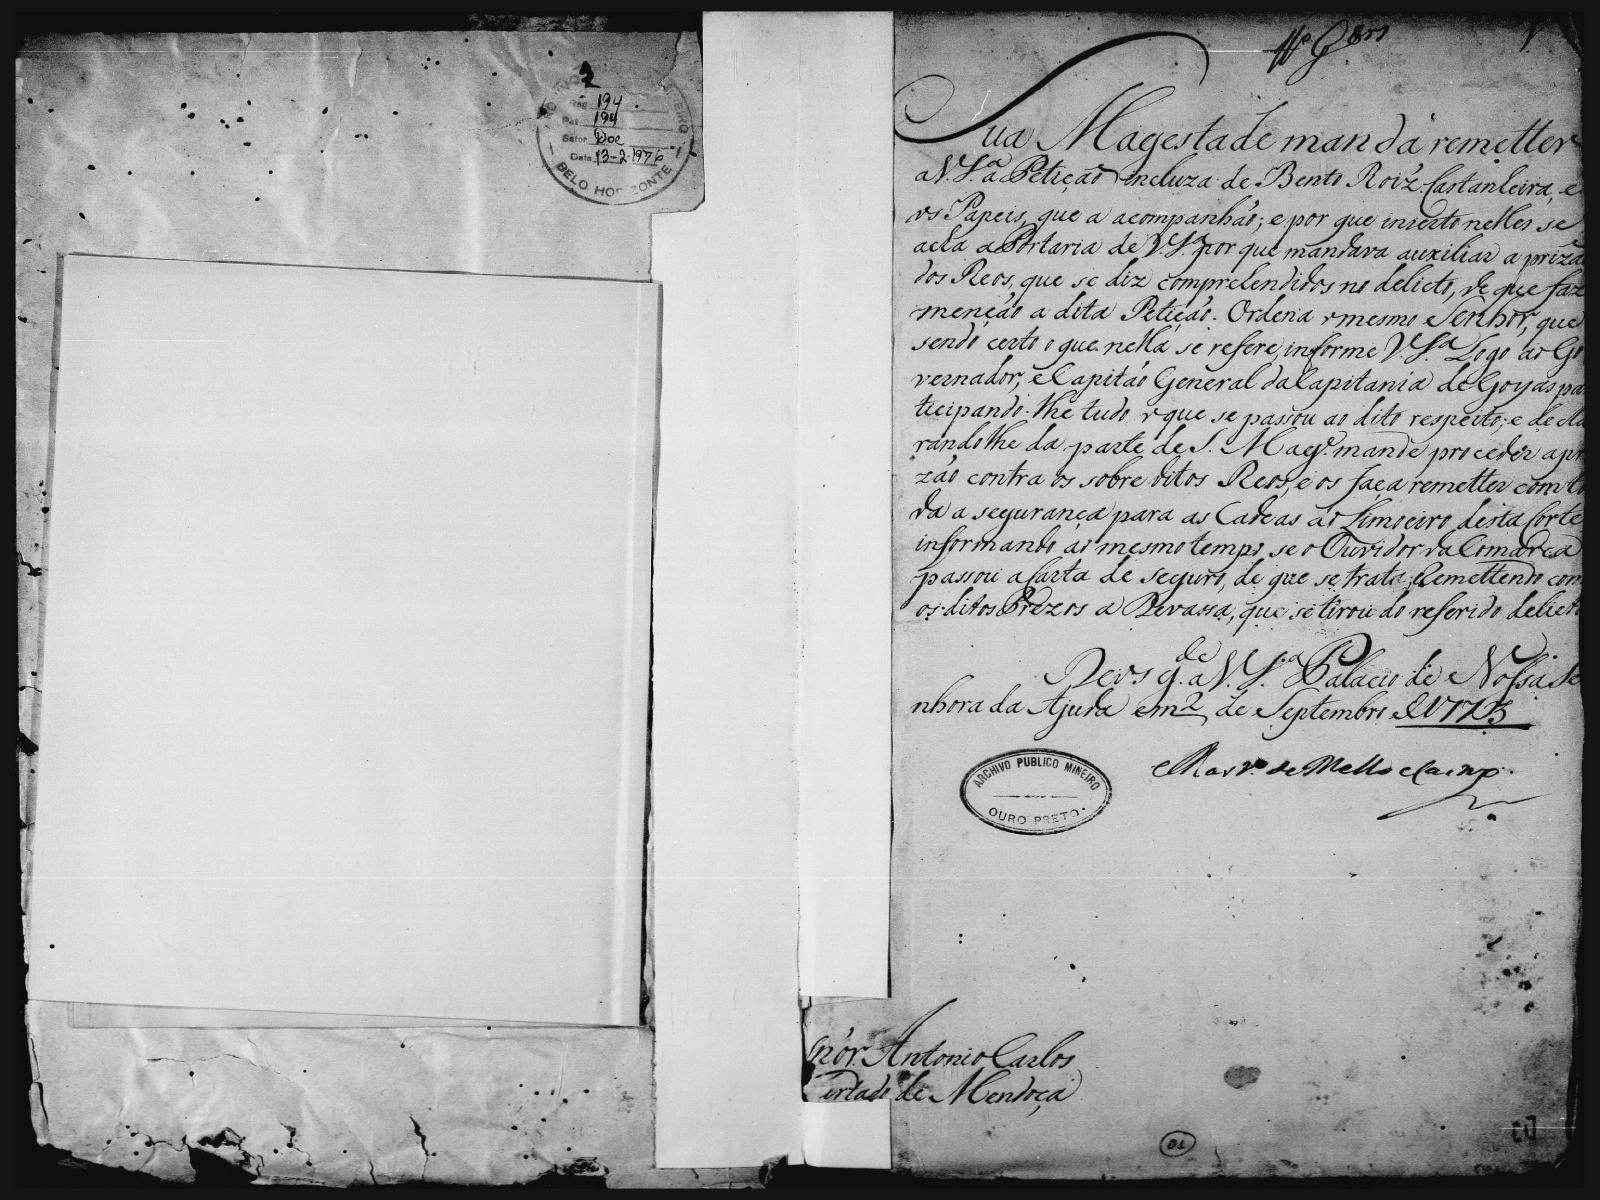 2
Reg. 194
Pat. 194
Setor Doc
Data 13-2-1976
BELO HORIZONTE
Sua Magestade manda remetter
a V. S.ª a Petição incluza de Bento Roiz Castanheira, e
os Papeis, que a acompanhão; e por que inserto nelles se
acha a Portaria de V. S.ª por que mandava auxiliar a prizã
dos Reos, que se diz comprehendidos no delicto, de que faz
menção a dita Petição. Ordena o mesmo Senhor, que
sendo certo o que nella se refere, informe V. S.ª Logo ao Go
vernador, e Capitão General da Capitania de Goyas par
ticipando-lhe tudo o que se passou ao dito respeito; e decla
randolhe da parte de S. Mag.e mande proceder a pri
zão contra os sobre ditos Reos, e os faça remetter com to
da a segurança para as Cadeas do Limoeiro desta Corte
informando ao mesmo tempo, se o Ouvidor da Comarca
passou a Carta de seguro, de que se trata; Remettendo com
os ditos Prezos a Devassa, que se tirou do referido delicto
Deos g.de a V. S.ª Palacio de Nossa Se
nhora da Ajuda em 2 de Septembro de 1773
Mart.º de Mello e Castro
ARCHIVO PUBLICO MINEIRO
OURO PRETO
Snor. Antonio Carlos
Furtado de Mendoça
01